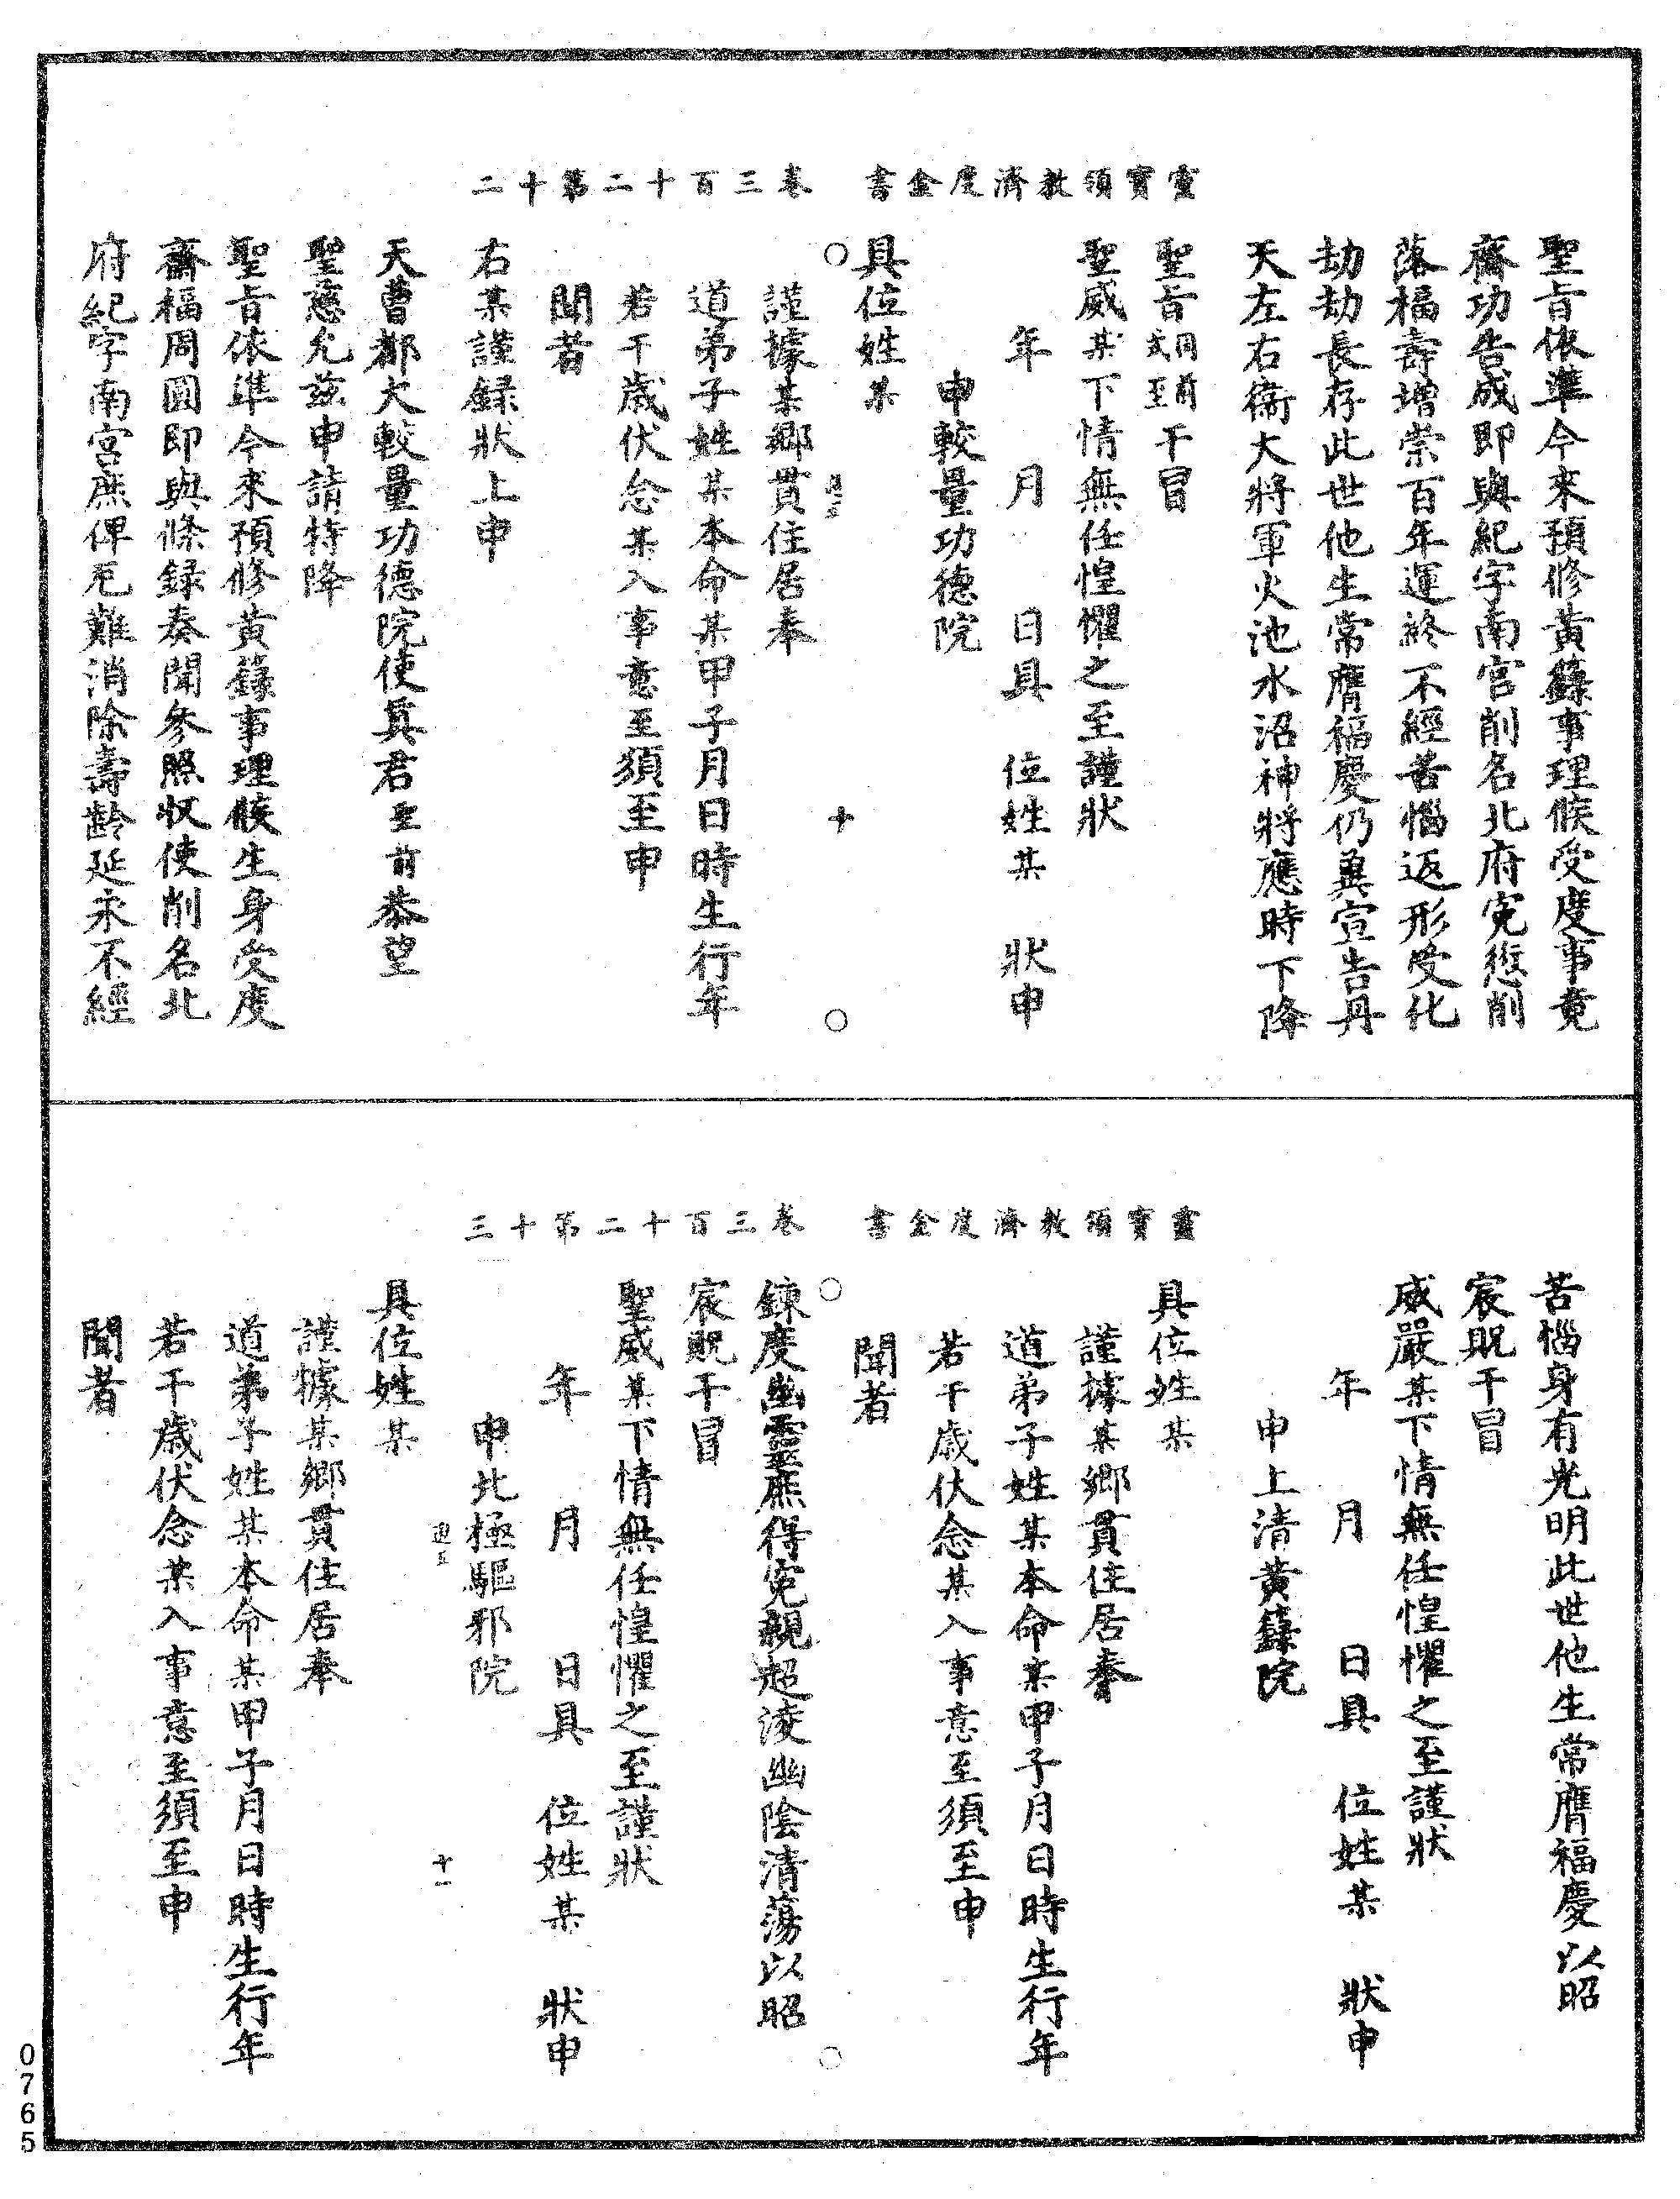 靈寶領教濟度金書 卷三百二十第十二
聖旨依準今來預修黃籙事理候受度事竟
齋功告成即與紀字南宮削名北府寃愆削
落福壽增崇百年運終不經苦惱返形受化
劫劫長存此世他生常膺福慶仍冀宣告丹
天左右衛大將軍火池水沼神將應時下降
聖旨同前式至干冒
聖威某下情無任惶懼之至謹狀
年 月 日具 位姓某 狀申
申較量功德院
具位姓某
十
謹據某鄉貫住居奉
道弟子姓某本命某甲子月日時生行年
若干歲伏念某入事意至須至申
聞者
右某謹録狀上申
天曹都大較量功德院使真君聖前恭望
聖慈允茲申請特降
聖旨依準今來預修黃籙事理候生身受度
齋福周圓即與條録奏聞參照收使削名北
府紀字南宮庶俾厄難消除壽齡延永不經
靈寶領教濟度金書 卷三百二十第十三
苦惱身有光明此世他生常膺福慶以昭
宸貺干冒
威嚴某下情無任惶懼之至謹狀
年 月 日具 位姓某 狀申
申上清黃籙院
具位姓某
謹據某鄉貫住居奉
道弟子姓某本命某甲子月日時生行年
若干歲伏念某入事意至須至申
聞者
鍊度幽靈庶得寃親超淩幽陰清蕩以昭
宸貺干冒
聖威某下情無任惶懼之至謹狀
年 月 日具 位姓某 狀申
申北極驅邪院
十一
具位姓某
謹據某鄉貫住居奉
道弟子姓某本命某甲子月日時生行年
若干歲伏念某入事意至須至申
聞者
0765